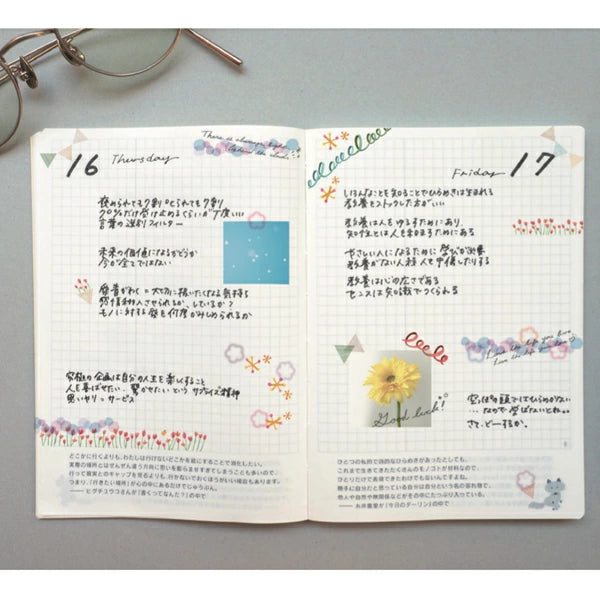 16 Thursday
There is always light
behind the clouds.
褒められても7割、叱られても7割
70%だけ受け止めるくらいが丁度いい
言葉の選別フィルター
未来の価値になるかどうか
今が全てではない
愛着がわく＝大切に扱いたくなる気持ち
モノに対する
究極の企画は自分の人生を楽しくすること
人を喜ばせたい、驚かせたいという サプライズ精神
思いやり＝サービス
どこかに行くよりも、わたしは行けないどこかを絵にすることで消化したい。
実際の場所とはぜんぜん違う方向に思いを膨らませすぎてしまうことも多いので、
行って現実とのギャップを見るよりも、行かないでおくほうがいい場合もあります。
つまり、「行きたい場所」が心の中にあるだけでじゅうぶん。
——ヒグチユウコさんが『書くってなんだ？』の中で
Friday 17
いろんなことを知ることでひらめきは生まれる
教養をストックした方がいい
教養は人をゆるすためにあり
知性とは人を和ますためにある
やさしい人になるために 学びが必要
教養がない人程 人を卑下したりする
教養は心の広さである
センスは知識でつくられる
Live the life you love.
Love the life you live.
Good luck!
空っぽの頭ではひらめかない…
なので 学ばないとね。。
さて、どーするか。
ひとつの私的で詩的なひらめきがあったとしても、
これまで生きてきたたくさんのモノゴトが材料なので、
ひとりだけで発育できたわけでもないんですよね。
勝手に自分だと思っている自分は自分という名の容れ物で、
他人や自然や時関係などがその中にたっぷり入っている。
——糸井重里が『今日のダーリン』の中で